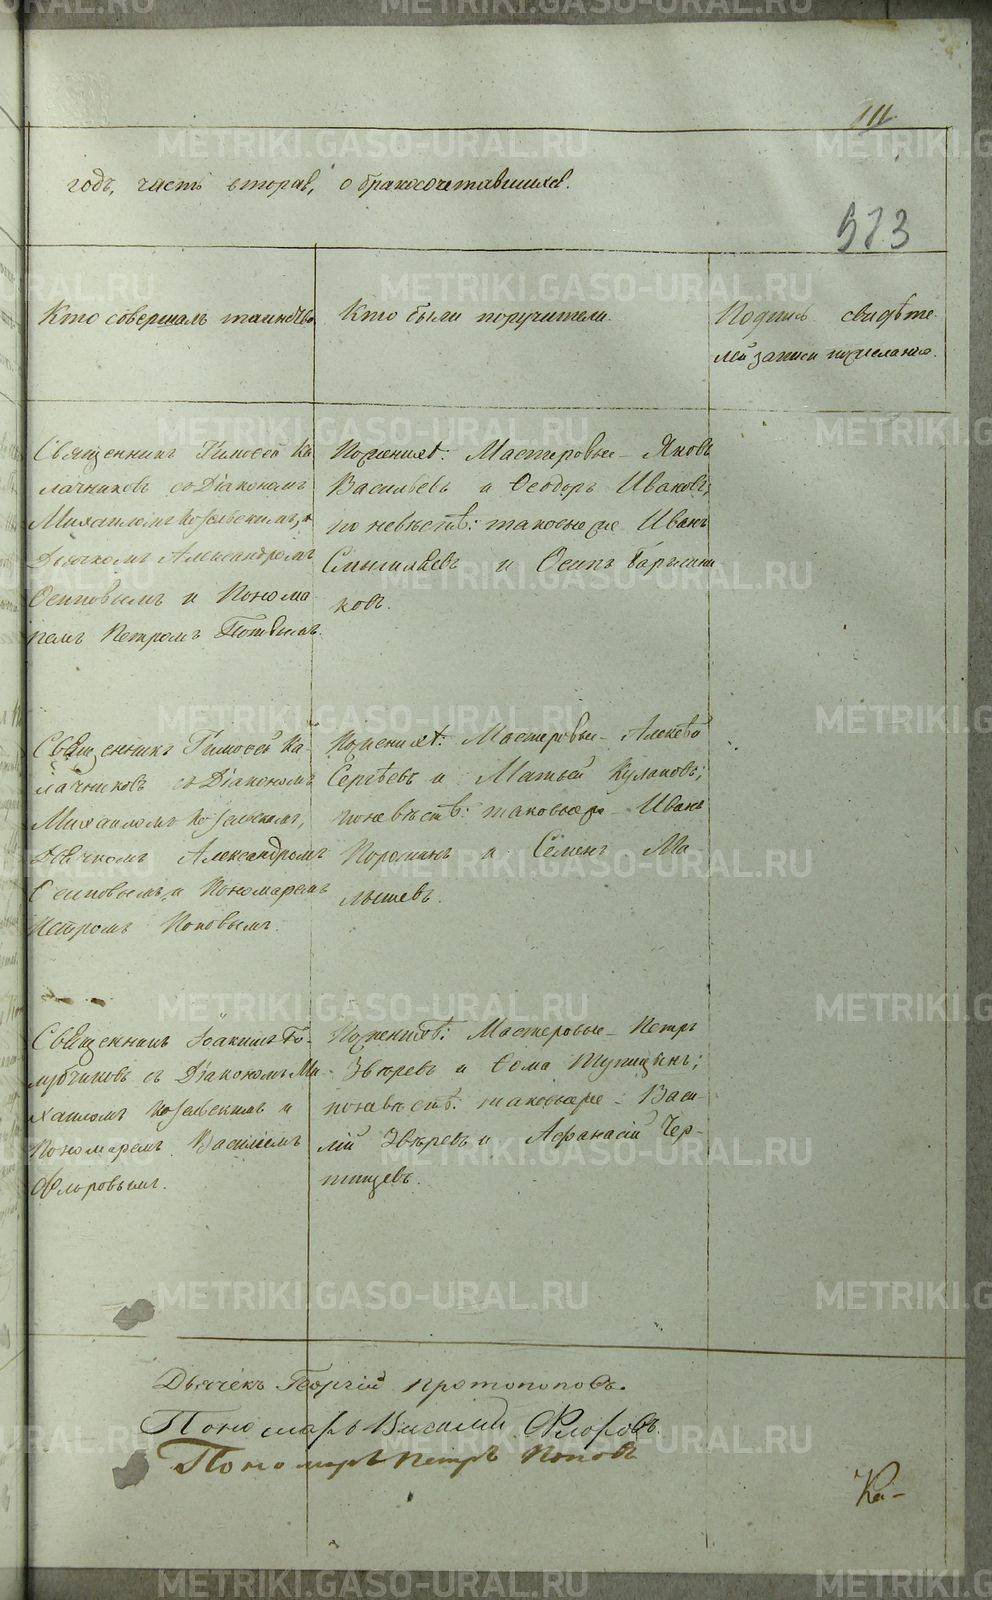 111
годъ, часть вторая, о бракосочетавшихся.
573
Кто совершалъ таинство
Кто были поручители.
Подпись свидѣте
лей записи по желанію.
Священникъ Тимоѳей Ка
лачниковъ со Діакономъ
Михаиломъ Козельскимъ, и
Дьячкомъ Александромъ
Осиповымъ и Понома
ремъ Петромъ Поповымъ.
По женихѣ: Мастеровые Яковъ
Васильевъ и Ѳеодоръ Ивановъ;
по невѣстѣ: таковые же Иванъ
и Осипъ
ковъ.
Священникъ Тимоѳей Ка-
лачниковъ со Діакономъ
Михаиломъ Козельскимъ,
Дьячкомъ Александромъ
Осиповымъ, и Пономаремъ
Петромъ Поповымъ.
По женихѣ: Мастеровые Алексѣй
Сергѣевъ и Матвѣй Кулаковъ;
по невѣстѣ: таковые же Иванъ
и Семенъ Ма-
лышевъ.
Священникъ Іоакимъ Го-
лубчиковъ съ Діакономъ Ми-
хаиломъ Козельскимъ и
Пономаремъ Василіемъ
Флоровымъ.
По женихѣ: Мастеровые Петръ
Звѣревъ и Ѳома Тупицынъ;
по невѣстѣ: таковые же Васи-
лій Звѣревъ и Аѳанасій Чер-
Дьячекъ Георгій Протопоповъ.
Пономарь Василій Флоровъ.
Пономарь Петръ Поповъ
Ка-
METRIKI.GASO-URAL.RU